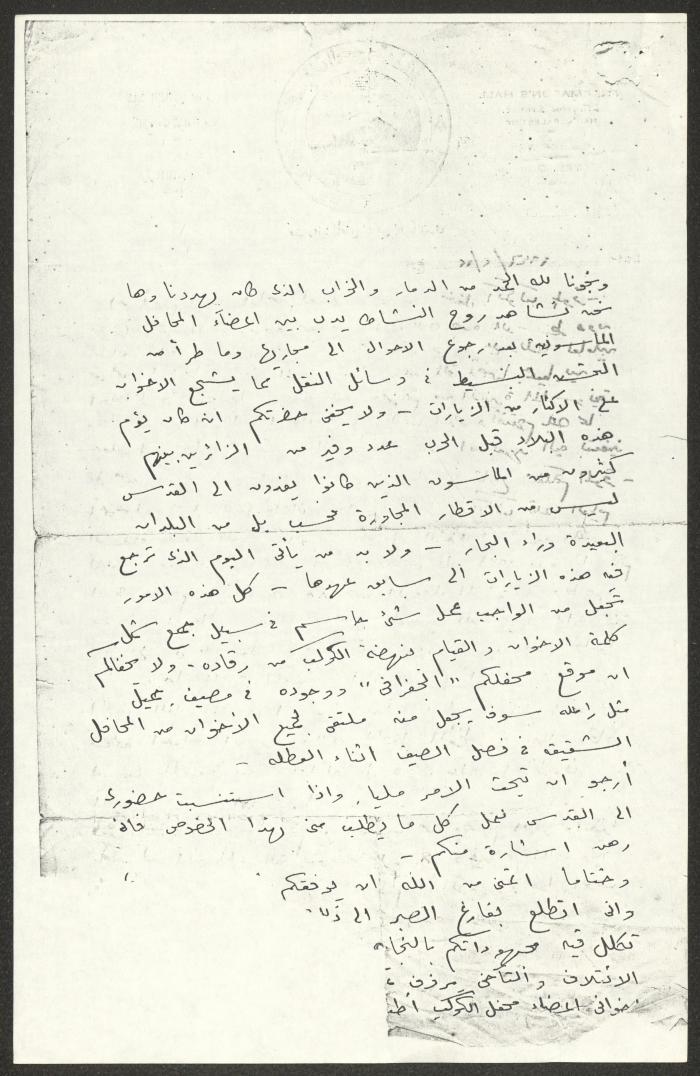 ونجونا لله الحمد من الدمار والخراب الذي كان يهددنا وها
نحن نشاهد روح النشاط يدب بين اعضآء المحافل
الماسونية بعد رجوع الاحوال الى مجاريها وما طرأ من
التحسين البسيط في وسائل النقل مما يشجع الاخوان
على الاكثار من الزيارات - ولا يخفى حضرتكم ان كان يؤم
هذه البلاد قبل الحرب عدد وفير من الزائرين بينهم
كثيرون من الماسون الذين كانوا يفدون الى القدس
ليس من الاقطار المجاورة فحسب بل من البلدان
البعيدة وراء البحار - ولا بد من يأتي اليوم الذي ترجع
فيه هذه الزيارات الى سابق عهدها - كل هذه الامور
تجعل من الواجب عمل شئ حاسم في سبيل جمع شمل
كلمة الاخوان والقيام بنهضة الكوكب من رقاده - ولا يخفاكم
ان موقع محفلكم "الجغرافي" ووجوده في مصيف جميل
مثل رامالله سوف يجعل منه ملتقى لجميع الأخوان من المحافل
الشقيقة في فصل الصيف اثناء العطله -
أرجو ان تبحث الامر مليا، واذا استنسبت حضوري
الى القدس لعمل كل ما يطلب مني بهذا الخصوص فانا
رهن اشارة منكم -
وختاما اتمنى من الله ان يوفقكم
واني اتطلع بفارغ الصبر الى
تكلل فيه مجهوداتكم بالنجا
الائتلاف والتآخي مرفرف
اخواني اعضاء محفل الكوكب
FREEMASON'S HALL